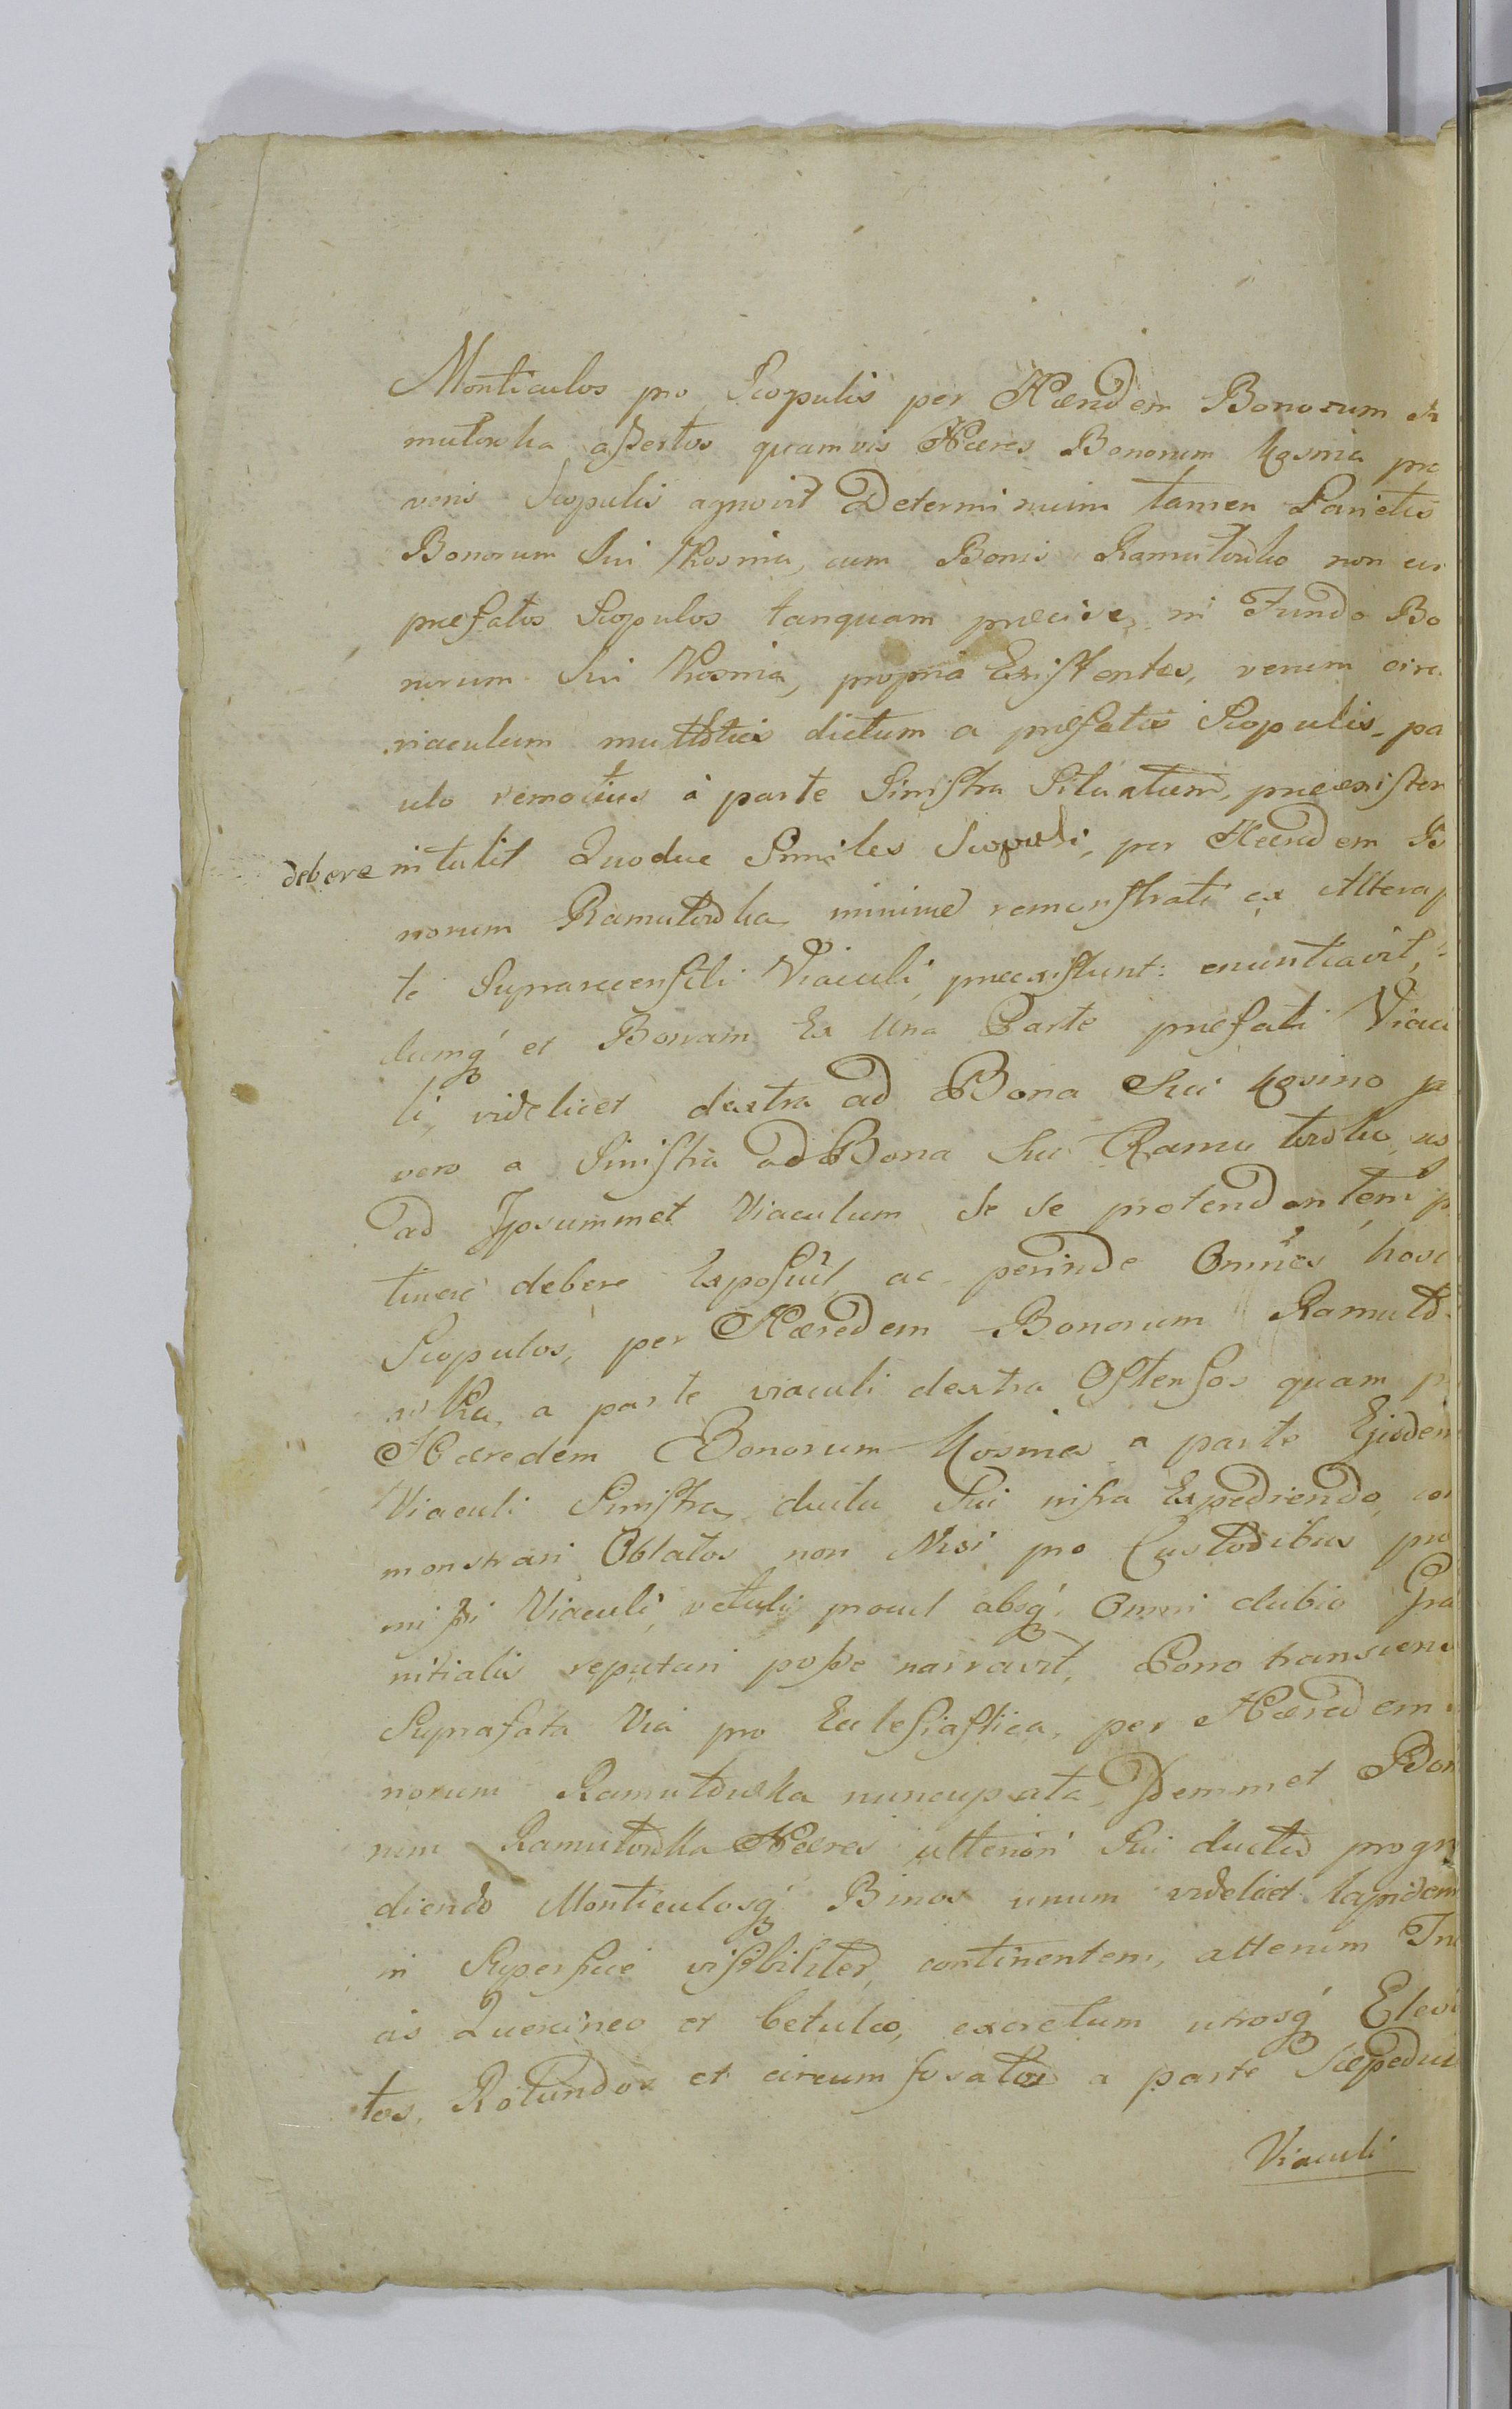 Monticulos pro Scopulis per Hæredem Bonorum
mutowka assertos quamvis Hæres Bonorum Kosnia pro
veris Scopulis agnovit Determinium tamen Parietis
Bonorum Sui Kosnia, cum Bonis Ramutowka non cir
præfatos Scopulos tanquam præcise, in Fundo Bo
norum Sui Kosnia, propria Existentes, verum circa
viaculum dictum a præfatis Scopulis pa
ulo remotius a parte Sinistra Situatum, præexister
debere intulit Quodve Similes Scopuli, per Hæredem B
norum Ramutowka minime remonstrati ex Altera p
te Suprarecensiti Viaculi præexistunt: enuntiavit,
dumq et Borram Ex Una Parte præfati Viacu
li, videlicet dextra ad Bona Sui Kosnia
vero a Sinistra ad Bona Sui Ramutowka us
ad Ipsummet Viaculum se se protendentem p
tinere debere Exposuit, ac perinde Omnes hosc
Scopulos, per Hæredem Bonorum Ramuto
wka, a parte viaculi dextra Ostensos quam p
Hæredem Bonorum Kosnia a parte Ejusdem
Viaculi Sinistra, ductu Sui infra Expediendo, co
monstrari Oblatos non Nisi pro Custodibus præ
missi Viaculi, procul absq Omni dubio Gra
nitialis reputari posse narravit, Porro
Suprafata Via pro Ecclesiastica, per Hæredem
norum Ramutowka nuncupata, Idemmet Bon
rum Ramutowka Hæres ulteriori Sui ductu progr
diendo Monticulosq Binos unum videlicet lapidem
in Superficie visibiliter, continentem, alterum
Quercineo et betuleo, excretum utrosq
tos, Rotundos et circumfosatos a parte Sæpedic
Viaculi